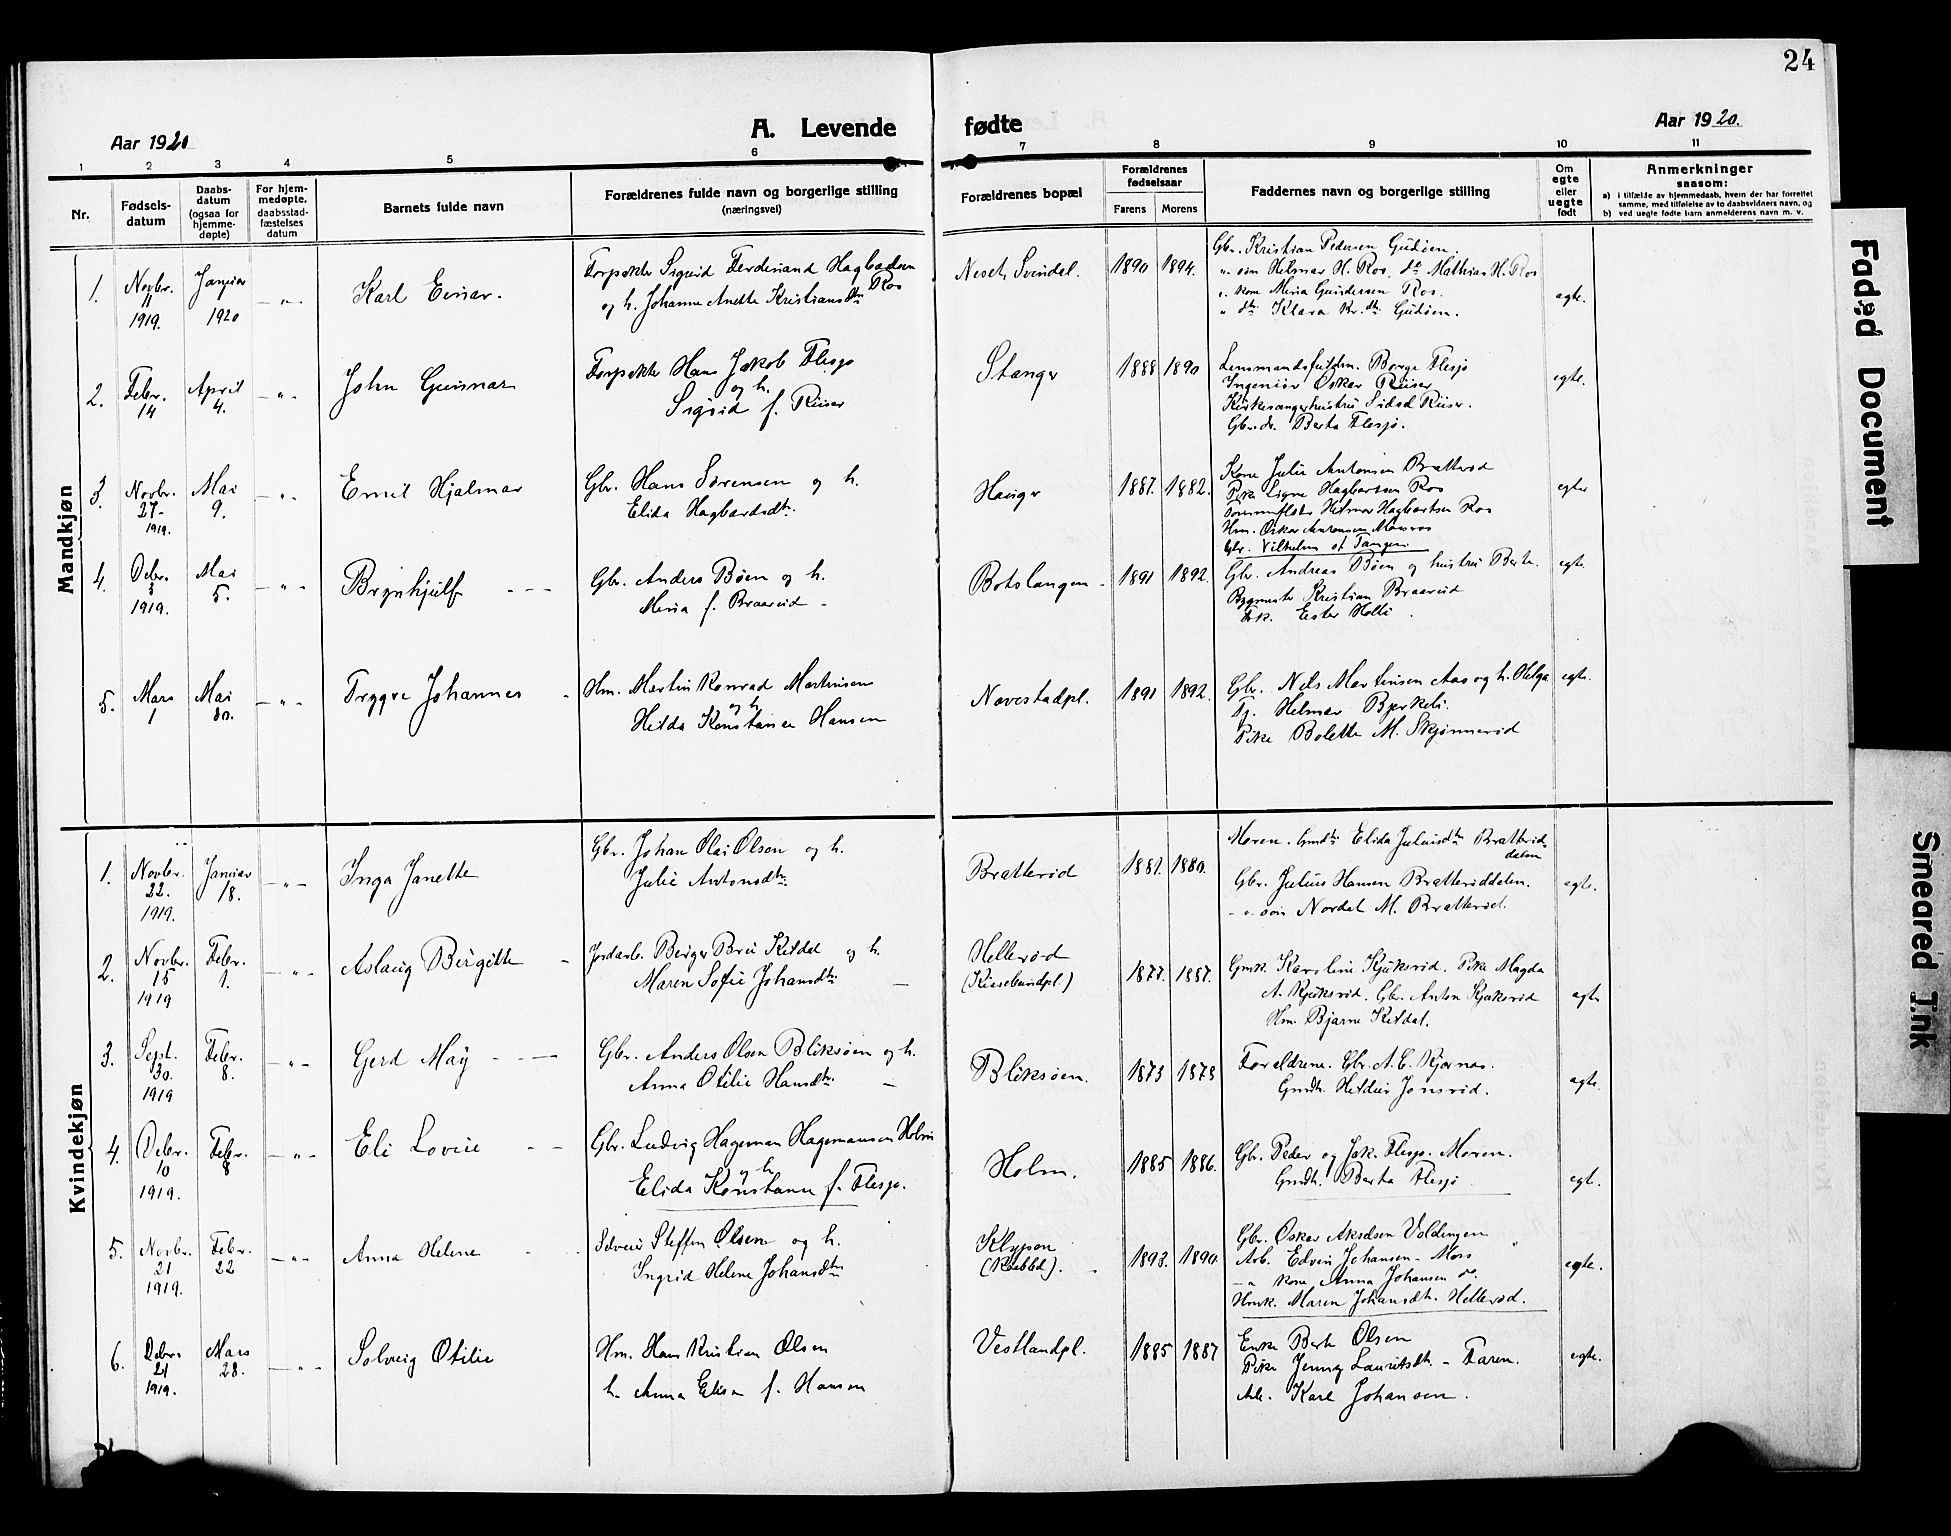 24
Aar 1920
A. Levende fødte
Aar 1920.
1 2 3 4 5 6 7 8 9 10 11
Nr.
Fødsels-
datum
Daabs-
datum
(ogsaa for
hjemme-
døpte)
For hjem-
medøpte.
daabsstad-
fæstelses
datum
Barnets fulde navn
Forældrenes fulde navn og borgerlige stilling
(næringsvei)
Forældrenes bopæl
Forældrenes
fødselsaar
Farens Morens
Faddernes navn og borgerlige stilling
Om
egte
eller
uegte
født
Anmerkninger
saasom:
a) i tilfælde av hjemmedaab, hvem der har forrettet
samme, med tilføielse av to daabsvidners navn, og
b) ved uegte fødte barn anmelderens navn m. v.
Mandkjøn
1. Novbr. 11 1919. Januar 1920 — „ — Karl Einar.
Sigurd Ferdinand Hagbardsen Ros
og h. Johanne Anette Kristiansdtr
Svindal. 1890 1894.
Gbr. Kristian Pedersen Gudim.
„ søn Helmer H. Ros, do Mathias H. Ros
„ kone Mina Gundersen Ros.
„ dtr Klara Kr.dtr Gudim.
egte.
2. Febr. 14 April 4. — „ — John Gunnar
Hans Jakob Flesjø
og h.
Sigrid f. Riiser
Stangr 1888 1890
Lensmandsfuldm. Borge Flesjø
Ingeniør Oskar Riiser
Kirkesangerhustru Riiser.
Gbr.dr. Berta Flesjø.
egte.
3. Novbr. 27- 1919. Mai 9. — „ — Emil Hjalmar
Gbr. Hans Sørensen og h.
Elida Hagbardsdtr.
Haugr 1887. 1882.
Kone Julie Antonsen Bratterød
Pike Signe Hagbartsen Ros
Helmer Hagbartsen Ros
Hm. Oskar
Gbr. Vilhelm Tangen
egte
4. Debr. 3 1919. Mai 5. — „ — Brynhjulf
Gbr. Anders Bøen og h.
Mina f. Braarud
Botslangen 1891 1892.
Gbr. Andreas Bøen og hustru Berta.
Kristian Braarud
Frk. Ester Holli.
egt.
5. Mars 1 Mai 30. — „ — Trygve Johannes
Hm. Martin Konrad Martinsen
og h
Hilda Konstance Hansen
Navestadpl. 1891 1892.
Gbr. Nils Martinsen Aas og h. Helga
Tj. Helmer Bjerkeli.
Pike Bolette M. Skjønnerød
egt.
Kvindekjøn
1. Novbr. 22. 1919. Januar 18. — „ — Inga Janette
Gbr. Johan Olai Olsen og h.
Julie Antonsdtr.
Bratterød 1881. 1880.
Moren. Gmdtr Elida Juliusdtr Bratterød
dalen
Gbr. Julius Hansen Bratterøddalen.
— „ søn Nordal M. Bratterød.
egte.
2. Novbr. 15 1919 Febr. 1. — „ — Aslaug Birgitte
Jordarb. Birger Kildal og h.
Maren Sofie Johansdtr.
Hellerød
1877. 1887.
Gmk. Karoline Kjuksrød. Pike Magda
A. Kjuksrød. Gbr. Anton Kjuksrød
Hm. Bjarne Kildal.
egte
3. Sept. 30. 1919 Febr. 8. — „ — Gerd Maÿ
Gbr. Anders Olsen Bliksøen og h.
Anna Otilie Hansdtr.
Bliksøen. 1873 1878
Forældrene. Gbr. A. C. Kjærnas.
Gmdtr. Jonsrød.
egte.
4. Debr. 10 1919. Febr. 8 — „ — Eli Lovise
Gbr. Ludvig Hageman Hagemansen Holm
og h
Elida Konstanse f. Flesjø.
Holm. 1885 1886.
Gbr. Peder og Jak. Flesjø. Moren.
Gmdtr. Berta Flesjø
egt.
5. Novbr. 21 1919. Febr. 22 — „ — Anna Helene
Steffen Olsen og h.
Ingrid Helene Johansdtr
Klypen
1893. 1890
Gbr. Oskar Akselsen Voldengen
Arb. Edvin Johansen - Moss
— „ kone Anna Johansen do.
Hmk. Maren Johansdtr. Hellerød.
egte.
6. Debr. 21 1919. Mars 28. — „ — Solveig Otilie
Hm. Hans Kristian Olsen
h. Anna Elise f. Hansen
Vestlandpl. 1885 1887
Enke Berte Olsen
Pike Jenny Lauritsdtr. - Faren.
Arb. Karl Johansen.
egte.
Faded Document
Smeared Ink